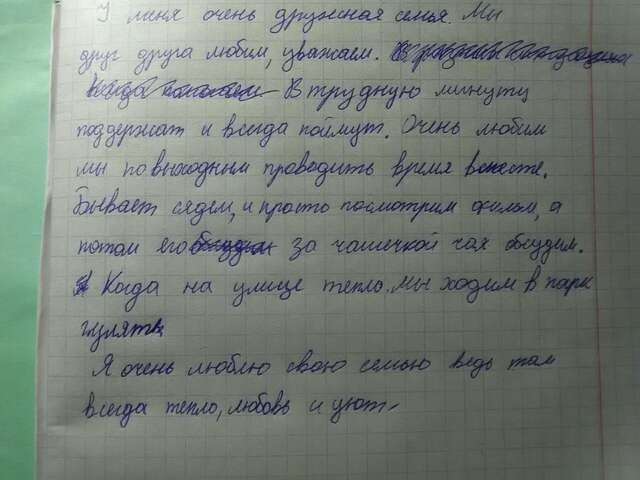 У меня очень дружная семья. Мы
друг друга любим, уважаем.
В трудную минуту
поддержат и всегда поймут. Очень любим
мы по выходным проводить время вместе.
Бывает сядем, и просто посмотрим фильм, а
потом его за чашечкой чая обсудим.
Когда на улице тепло. Мы ходим в парк
гулять
Я очень люблю свою семью ведь там
всегда тепло, любовь и уют.